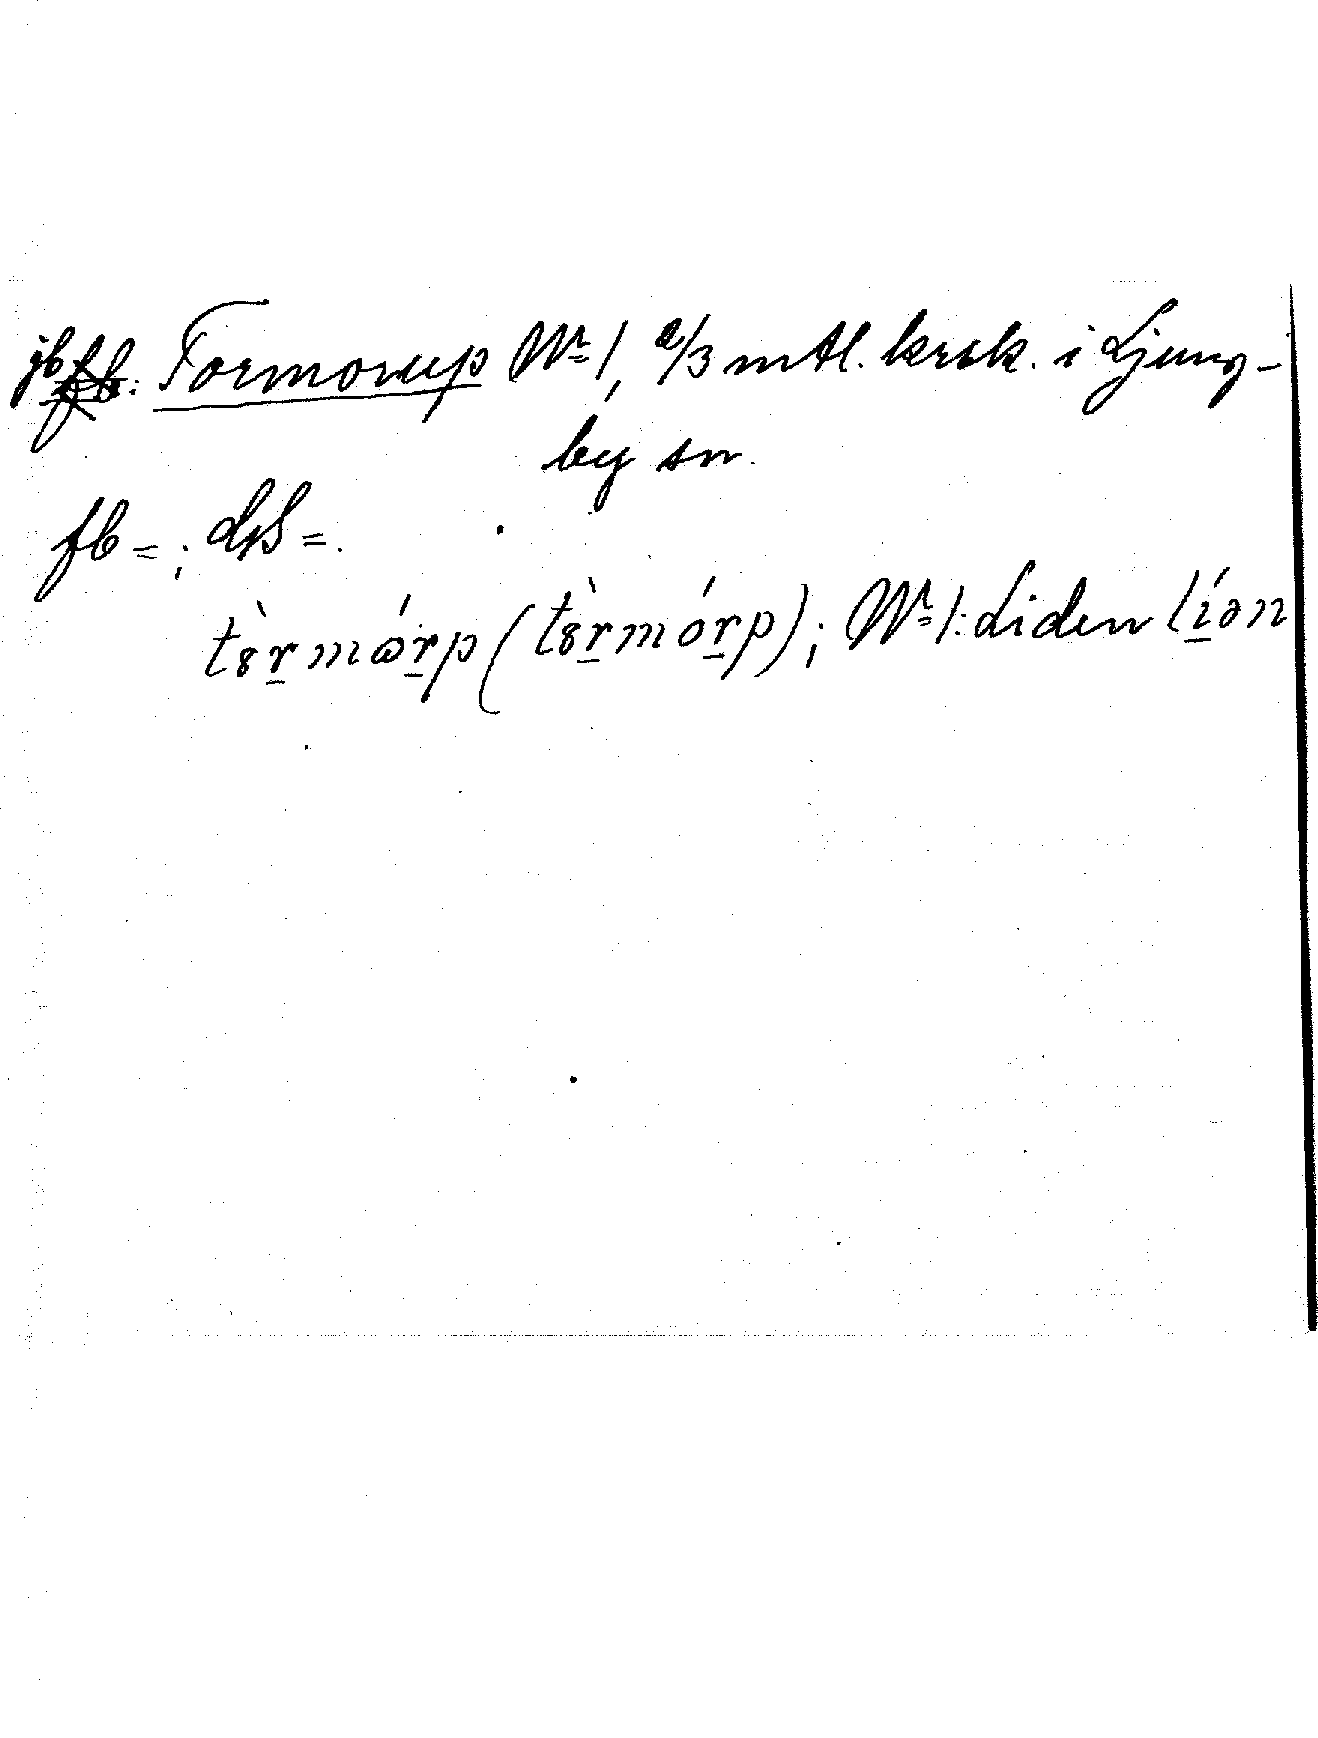 jb: Tormorup Nr 1, 2/3 mtl. krsk. i Ljung-
by sn.
fb = ; GS = .
tȣ̀rmɷ́rp (tȣ̀rmórp); Nr 1: Liden líən